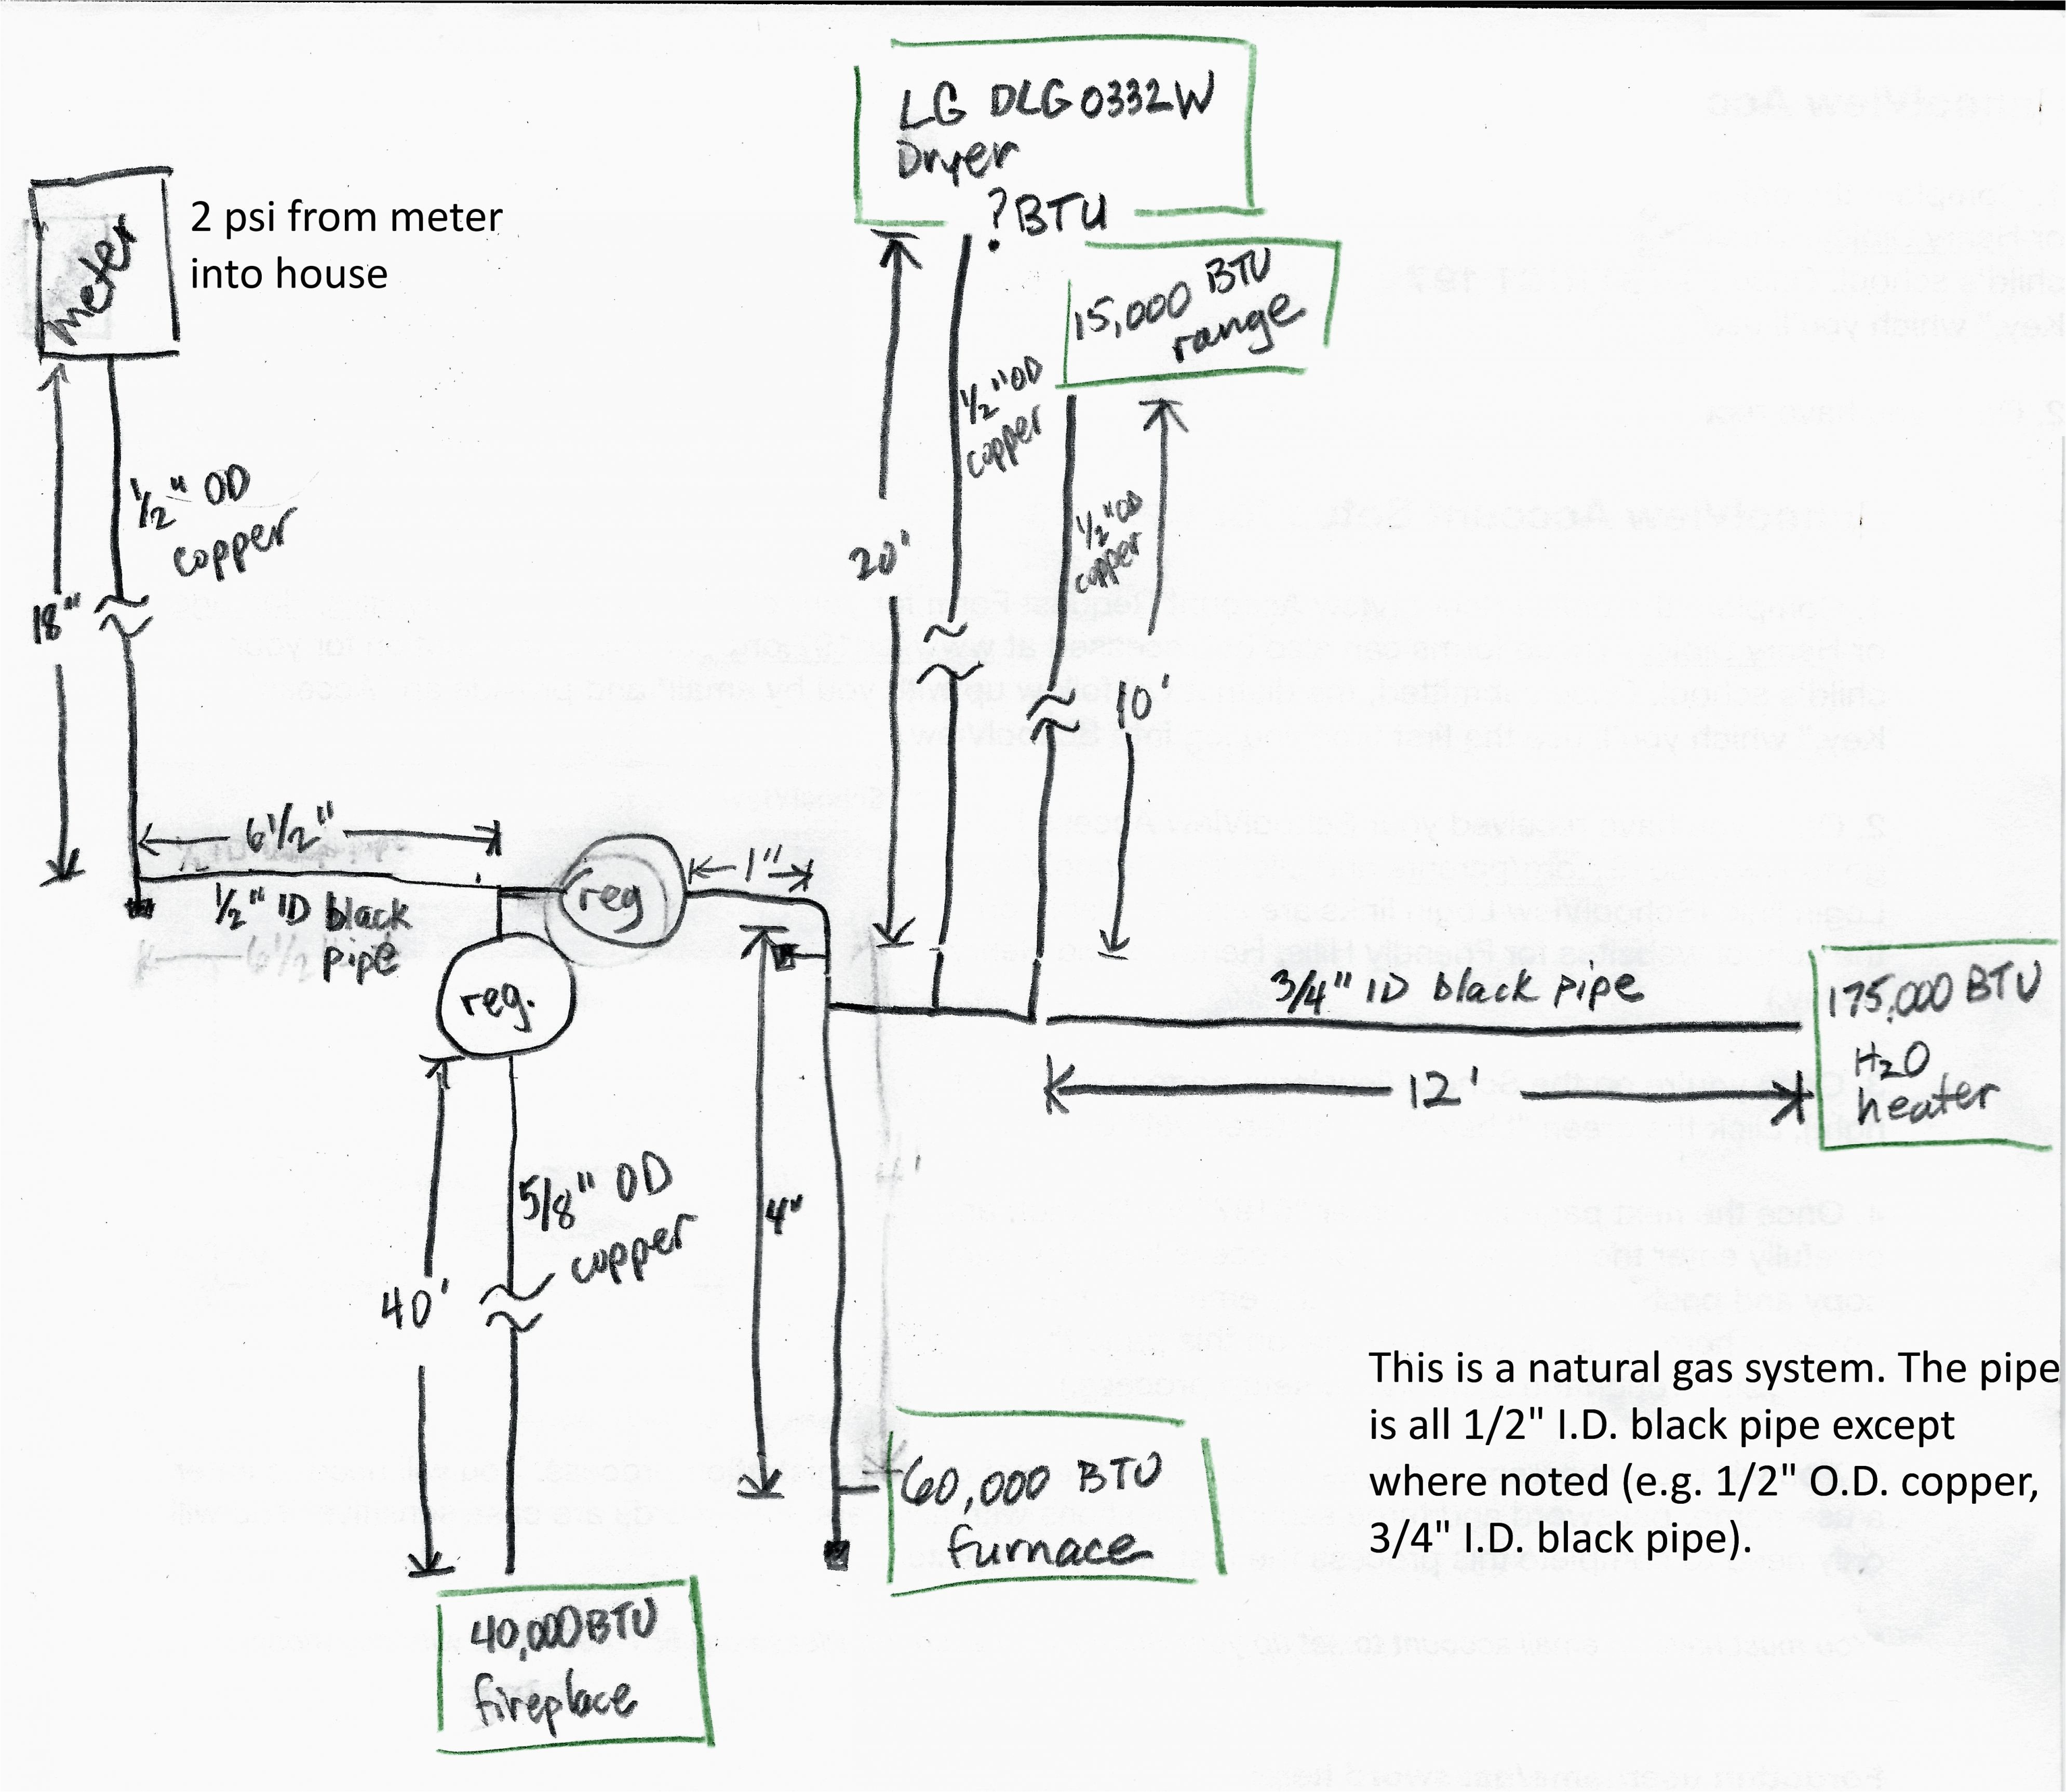 LG DLG0332W
Dryer
? BTU
meter
2 psi from meter
into house
15,000 BTU
range
1/2" OD
copper
1/2" OD
copper
1/2" OD
copper
18"
20'
10'
6 1/2"
1/2" ID black
pipe
reg
1"
reg.
3/4" ID black pipe
12'
175,000 BTU
H2O
heater
4"
5/8" OD
copper
40'
60,000 BTU
furnace
40,000 BTU
fireplace
This is a natural gas system. The pipe
is all 1/2" I.D. black pipe except
where noted (e.g. 1/2" O.D. copper,
3/4" I.D. black pipe).